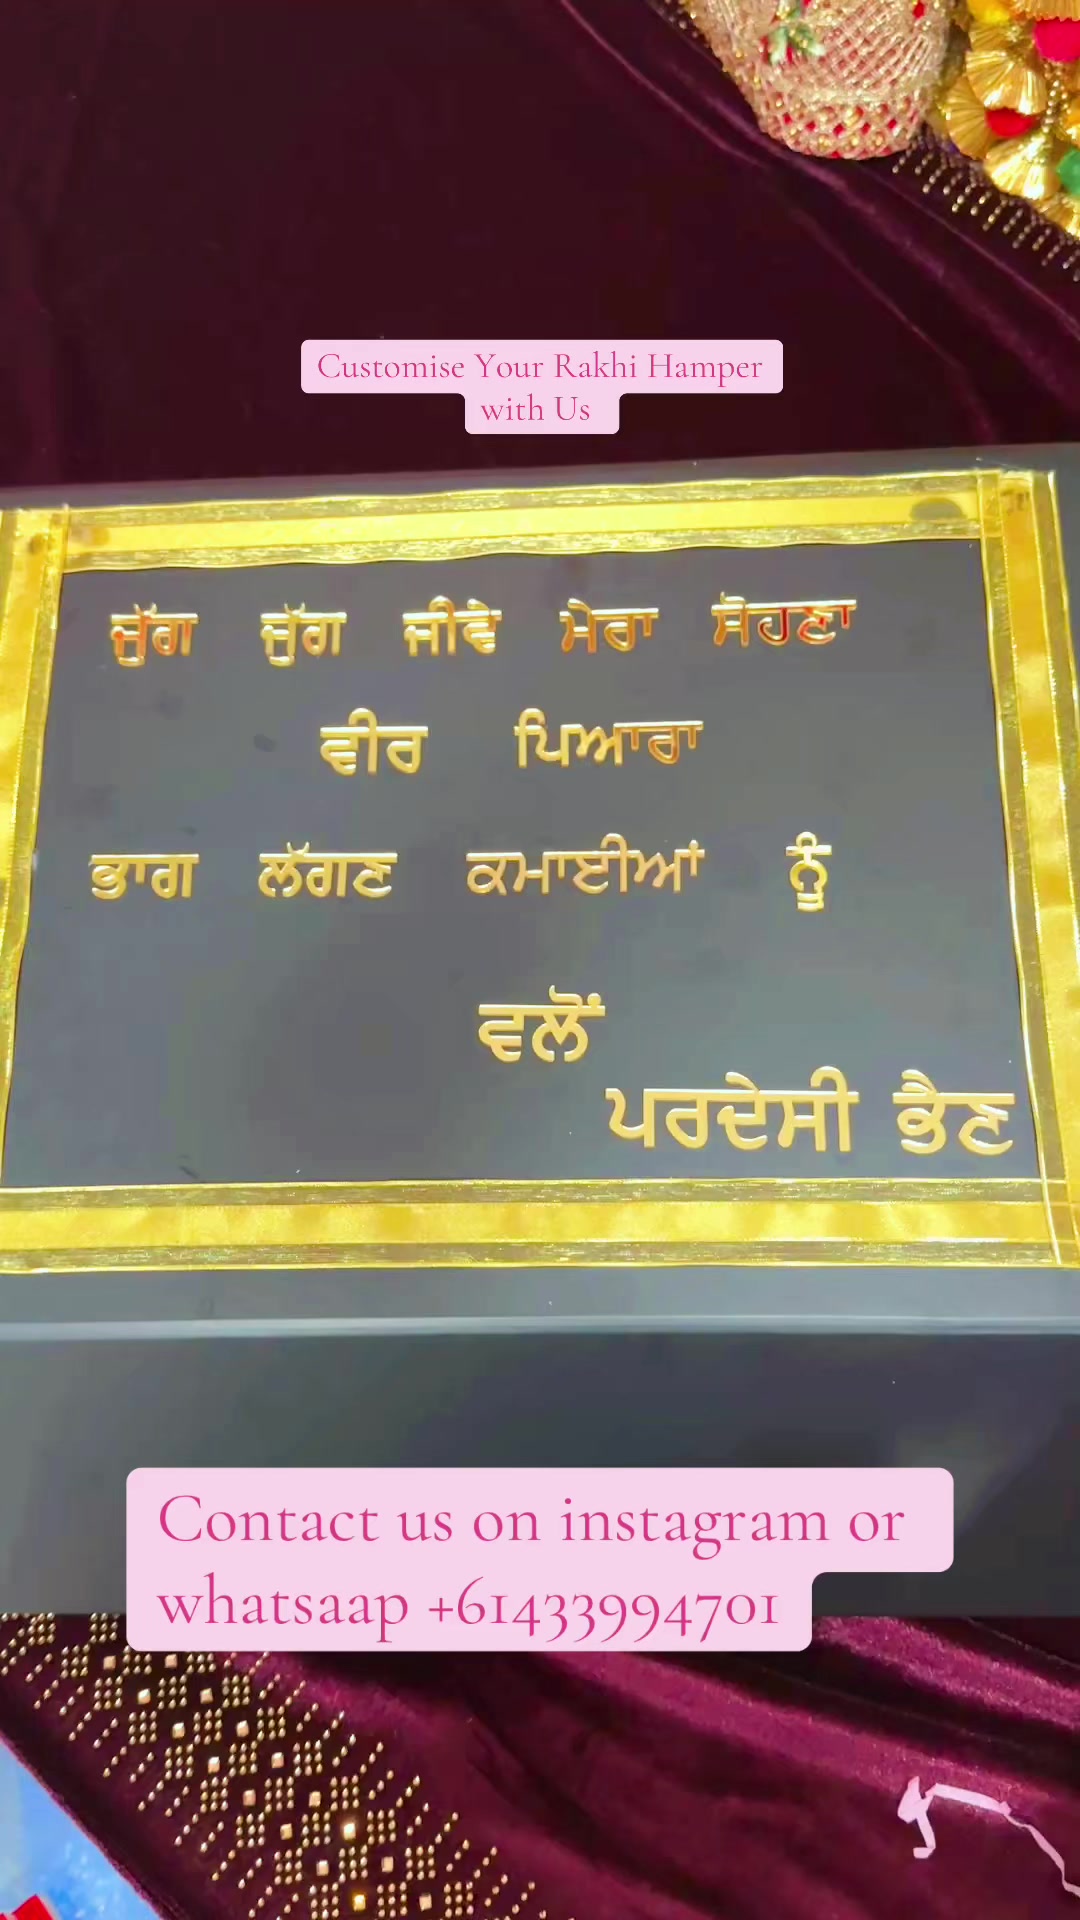 Customise Your Rakhi Hamper
with Us
ਜੁੱਗ ਜੁੱਗ ਜੀਵੇ ਮੇਰਾ ਸੋਹਣਾ
ਵੀਰ ਪਿਆਰਾ
ਭਾਗ ਲੱਗਣ ਕਮਾਈਆਂ ਨੂੰ
ਵਲੋਂ
ਪਰਦੇਸੀ ਭੈਣ
Contact us on instagram or
whatsaap +61433994701